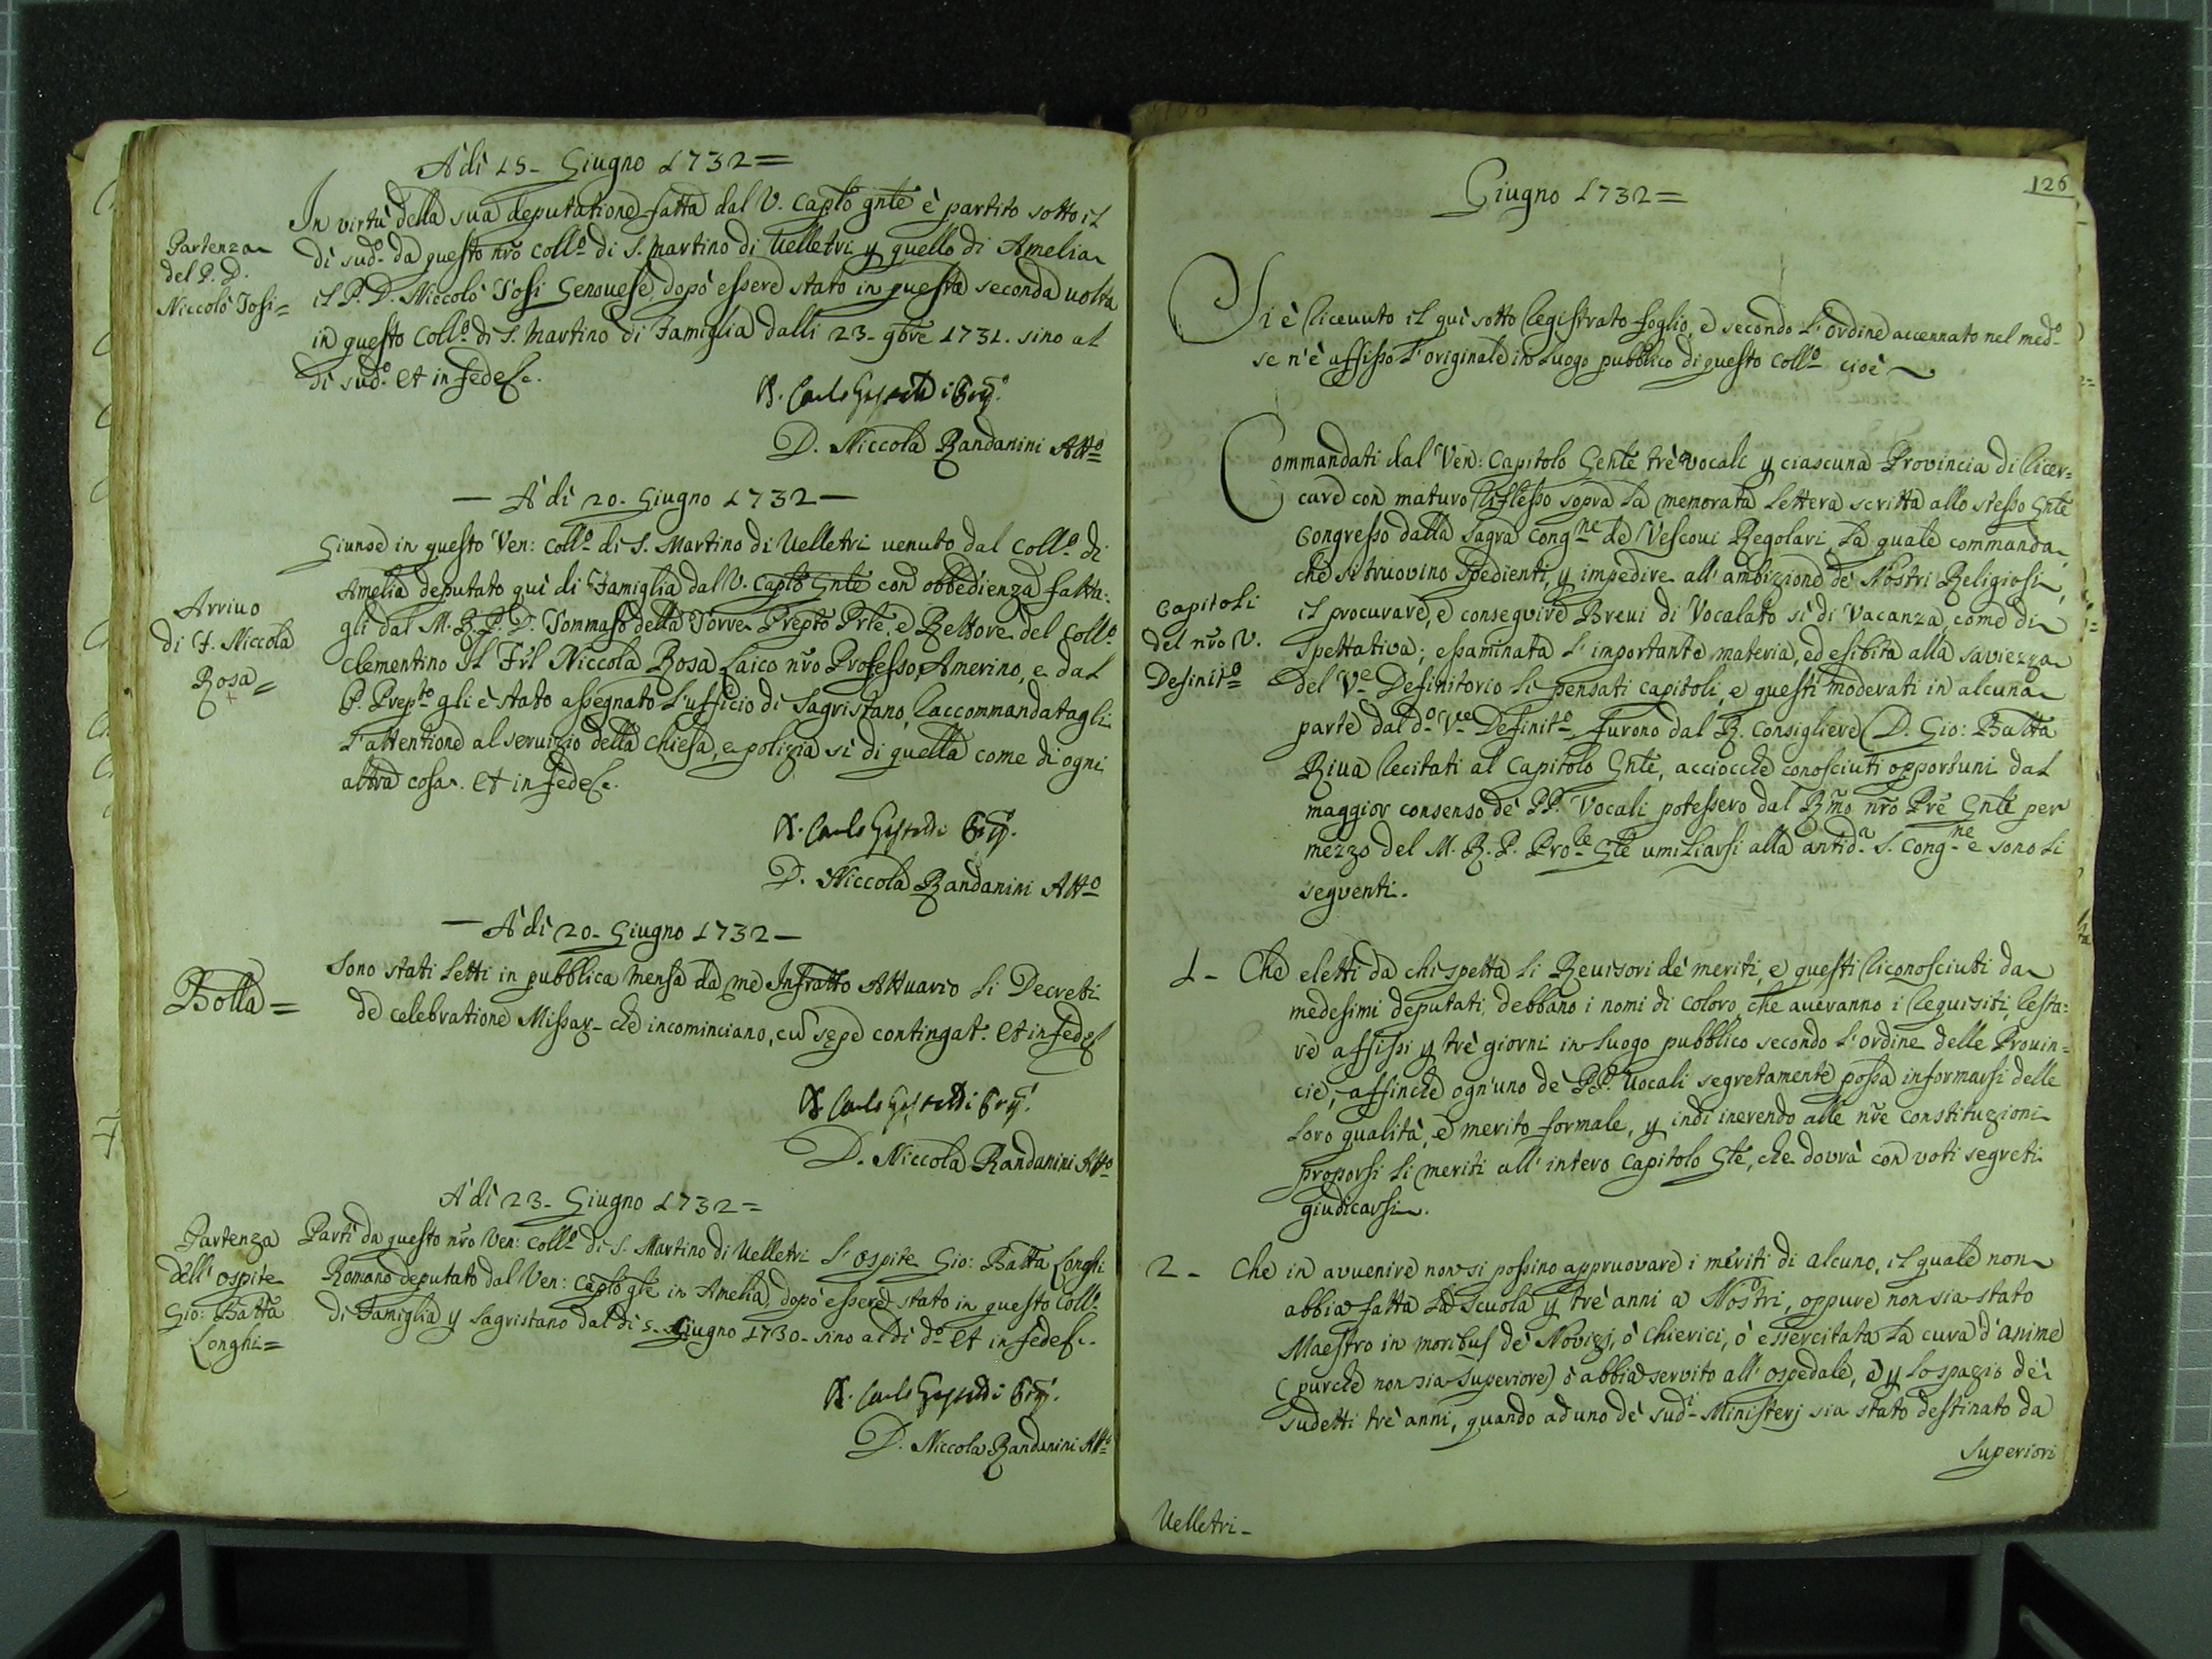 A' dì 15- Giugno 1732=
In virtù della sua deputatione fatta dal V. Caplo gnte è partito sotto il
Partenza
del P. D.
Niccolò Tosi=
dì sudo. da questo nro Collo di S. Martino di Velletri p quello di Amelia
il P. D. Niccolò Tosi Genovese, dopò essere stato in questa seconda volta
in questo Collo di S. Martino di Famiglia dalli 23- 9bre 1731. sino al
dì sudo. et in fede
D. Carlo
D. Niccola Randanini Atto
— A' dì 20- Giugno 1732 —
Giunse in questo Ven: Collo di S. Martino di Velletri venuto dal Collo di
Arrivo
di F. Niccola
Rosa=
Amelia deputato quì di Famiglia dal V. Caplo Gnte con obbedienza fatta-
gli dal M. R. P. D. Tommaso della Torre Prepto Prle, e Rettore del Collo
Clementino Il Frl Niccola Rosa Laico nro Professo Amerino, e dal
P. Prepto gli è stato assegnato l'ufficio di Sagristano, raccommandatagli
l'attentione al servizio della Chiesa, e polizia sì di quella come di ogni
altra cosa. et in fede
D. Carlo
D. Niccola Randanini Atto
— A' dì 20- Giugno 1732 —
Bolla=
Sono stati letti in pubblica mensa da me Infratto Attuario li Decreti
de celebratione Missar- che incominciano, cu sepe contingat. et in fede
D. Carlo
D. Niccola Randanini Atto
A' dì 23- Giugno 1732=
Partenza
dell' ospite
Gio: Batta
Longhi=
Partì da questo nro Ven: Collo di S. Martino di Velletri l'ospite Gio: Batta Longhi
Romano deputato dal Ven: Caplo gle in Amelia, dopò essere stato in questo Collo
di Famiglia p Sagristano dal dì 5- Giugno 1730- sino al dì do et in fede
D. Carlo
D. Niccola Randanini Atto
126
Giugno 1732=
Si è ricevuto il quì sotto registrato foglio, e secondo l'ordine accennato nel medo
se n'è affisso l'originale in luogo pubblico di questo Collo cioè
Capitoli
del nro V.
Definito=
Commandati dal Ven: Capitolo Gente trè vocali p ciascuna Provincia di ricer-
care con maturo riflesso sopra la memorata lettera scritta allo stesso Gnte
Congresso dalla Sagra Congne de' Vescovi Regolari, la quale commanda,
che si truovino spedienti, p impedire all' ambizione de' Nostri Religiosi,
il procurare, e conseguire Brevi di Vocalato sì di Vacanza, come di
Spettativa; essaminata l'importante materia, ed esibita alla saviezza
del Ve Definitorio li pensati capitoli, e questi moderati in alcuna
parte dal do Ve Definito, furono dal R. Consigliere D. Gio: Batta
Riva recitati al Capitolo Gnte, acciocche conosciuti opportuni dal
maggior consenso de' PP. Vocali potessero dal Rmo nro Pre Gnte per
mezzo del M. R. P. Prole Gle umiliarsi alla antida S. Congne e sono li
seguenti.
1- Che eletti da chi spetta li Revisori de' meriti, e questi riconosciuti da
medesimi deputati, debbano i nomi di coloro, che averanno i requisiti, resta-
re affissi p trè giorni in luogo pubblico secondo l'ordine delle Provin-
cie, affinche ogn'uno de' PP. Vocali segretamente possa informarsi delle
loro qualità, e merito formale, p indi inerendo alle nre Constituzioni
proporsi li meriti all' intero Capitolo Gle, che dovrà con voti segreti
giudicarsi.
2- Che in avvenire non si possino appruovare i meriti di alcuno, il quale non
abbia fatta la Scuola p trè anni a Nostri, oppure non sia stato
Maestro in moribus de' Novizj, ò Chierici, ò essercitata la cura d'anime
(purche non sia Superiore) ò abbia servito all' ospedale, ò p lo spazio de'
sudetti trè anni, quando ad uno de' sudi Ministerj sia stato destinato da
Superiori
Velletri-